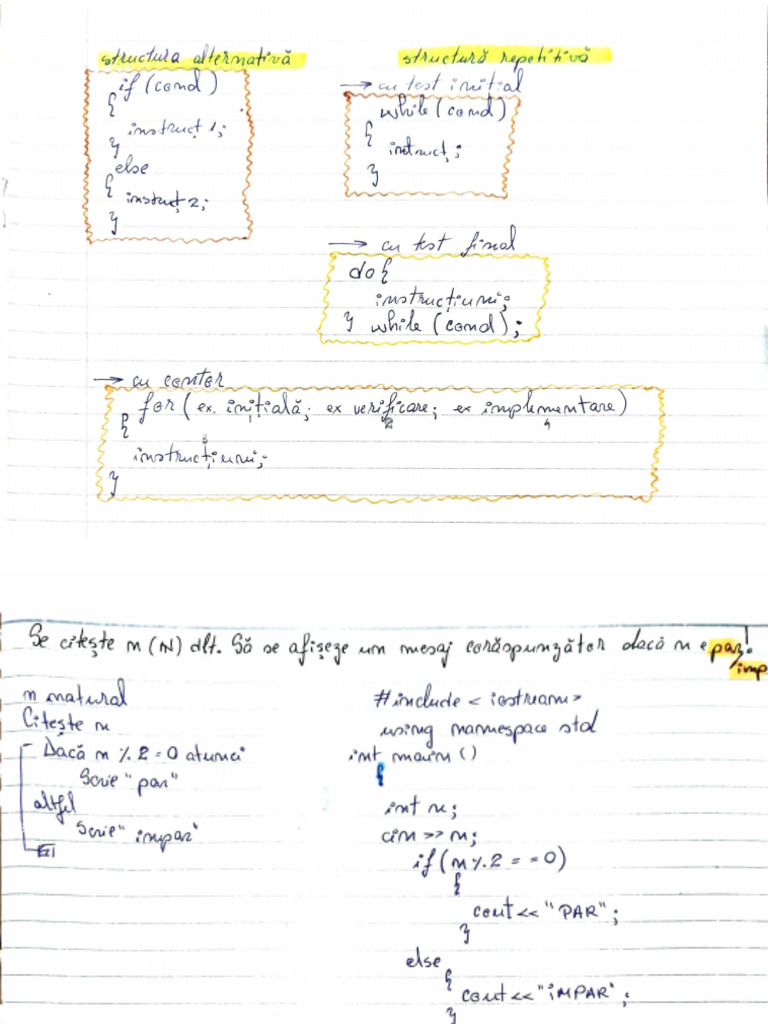 structura alternativă
if (cond)
{
instrucț 1;
}
else
{
instrucț 2;
}
structură repetitivă
→ cu test inițial
while (cond)
{
intrucț;
}
→ cu test final
do {
instrucțiuni;
} while (cond);
→ cu contor
for (ex. inițială; ex verificare; ex implementare)
1 2 4
{
3
instrucțiuni;
}
Se citește n (N) dlt. Să se afișeze un mesaj corăspunzător dacă n e par!
imp
n natural
Citește n
Dacă n % 2 = 0 atunci
Scrie "par"
altfel
Scrie "impar"
#include < iostream>
using namespace std
int main ()
{
int n;
cin >> n;
if (n % 2 = = 0)
{
cout << "PAR";
}
else
{
cout << "iMPAR";
}